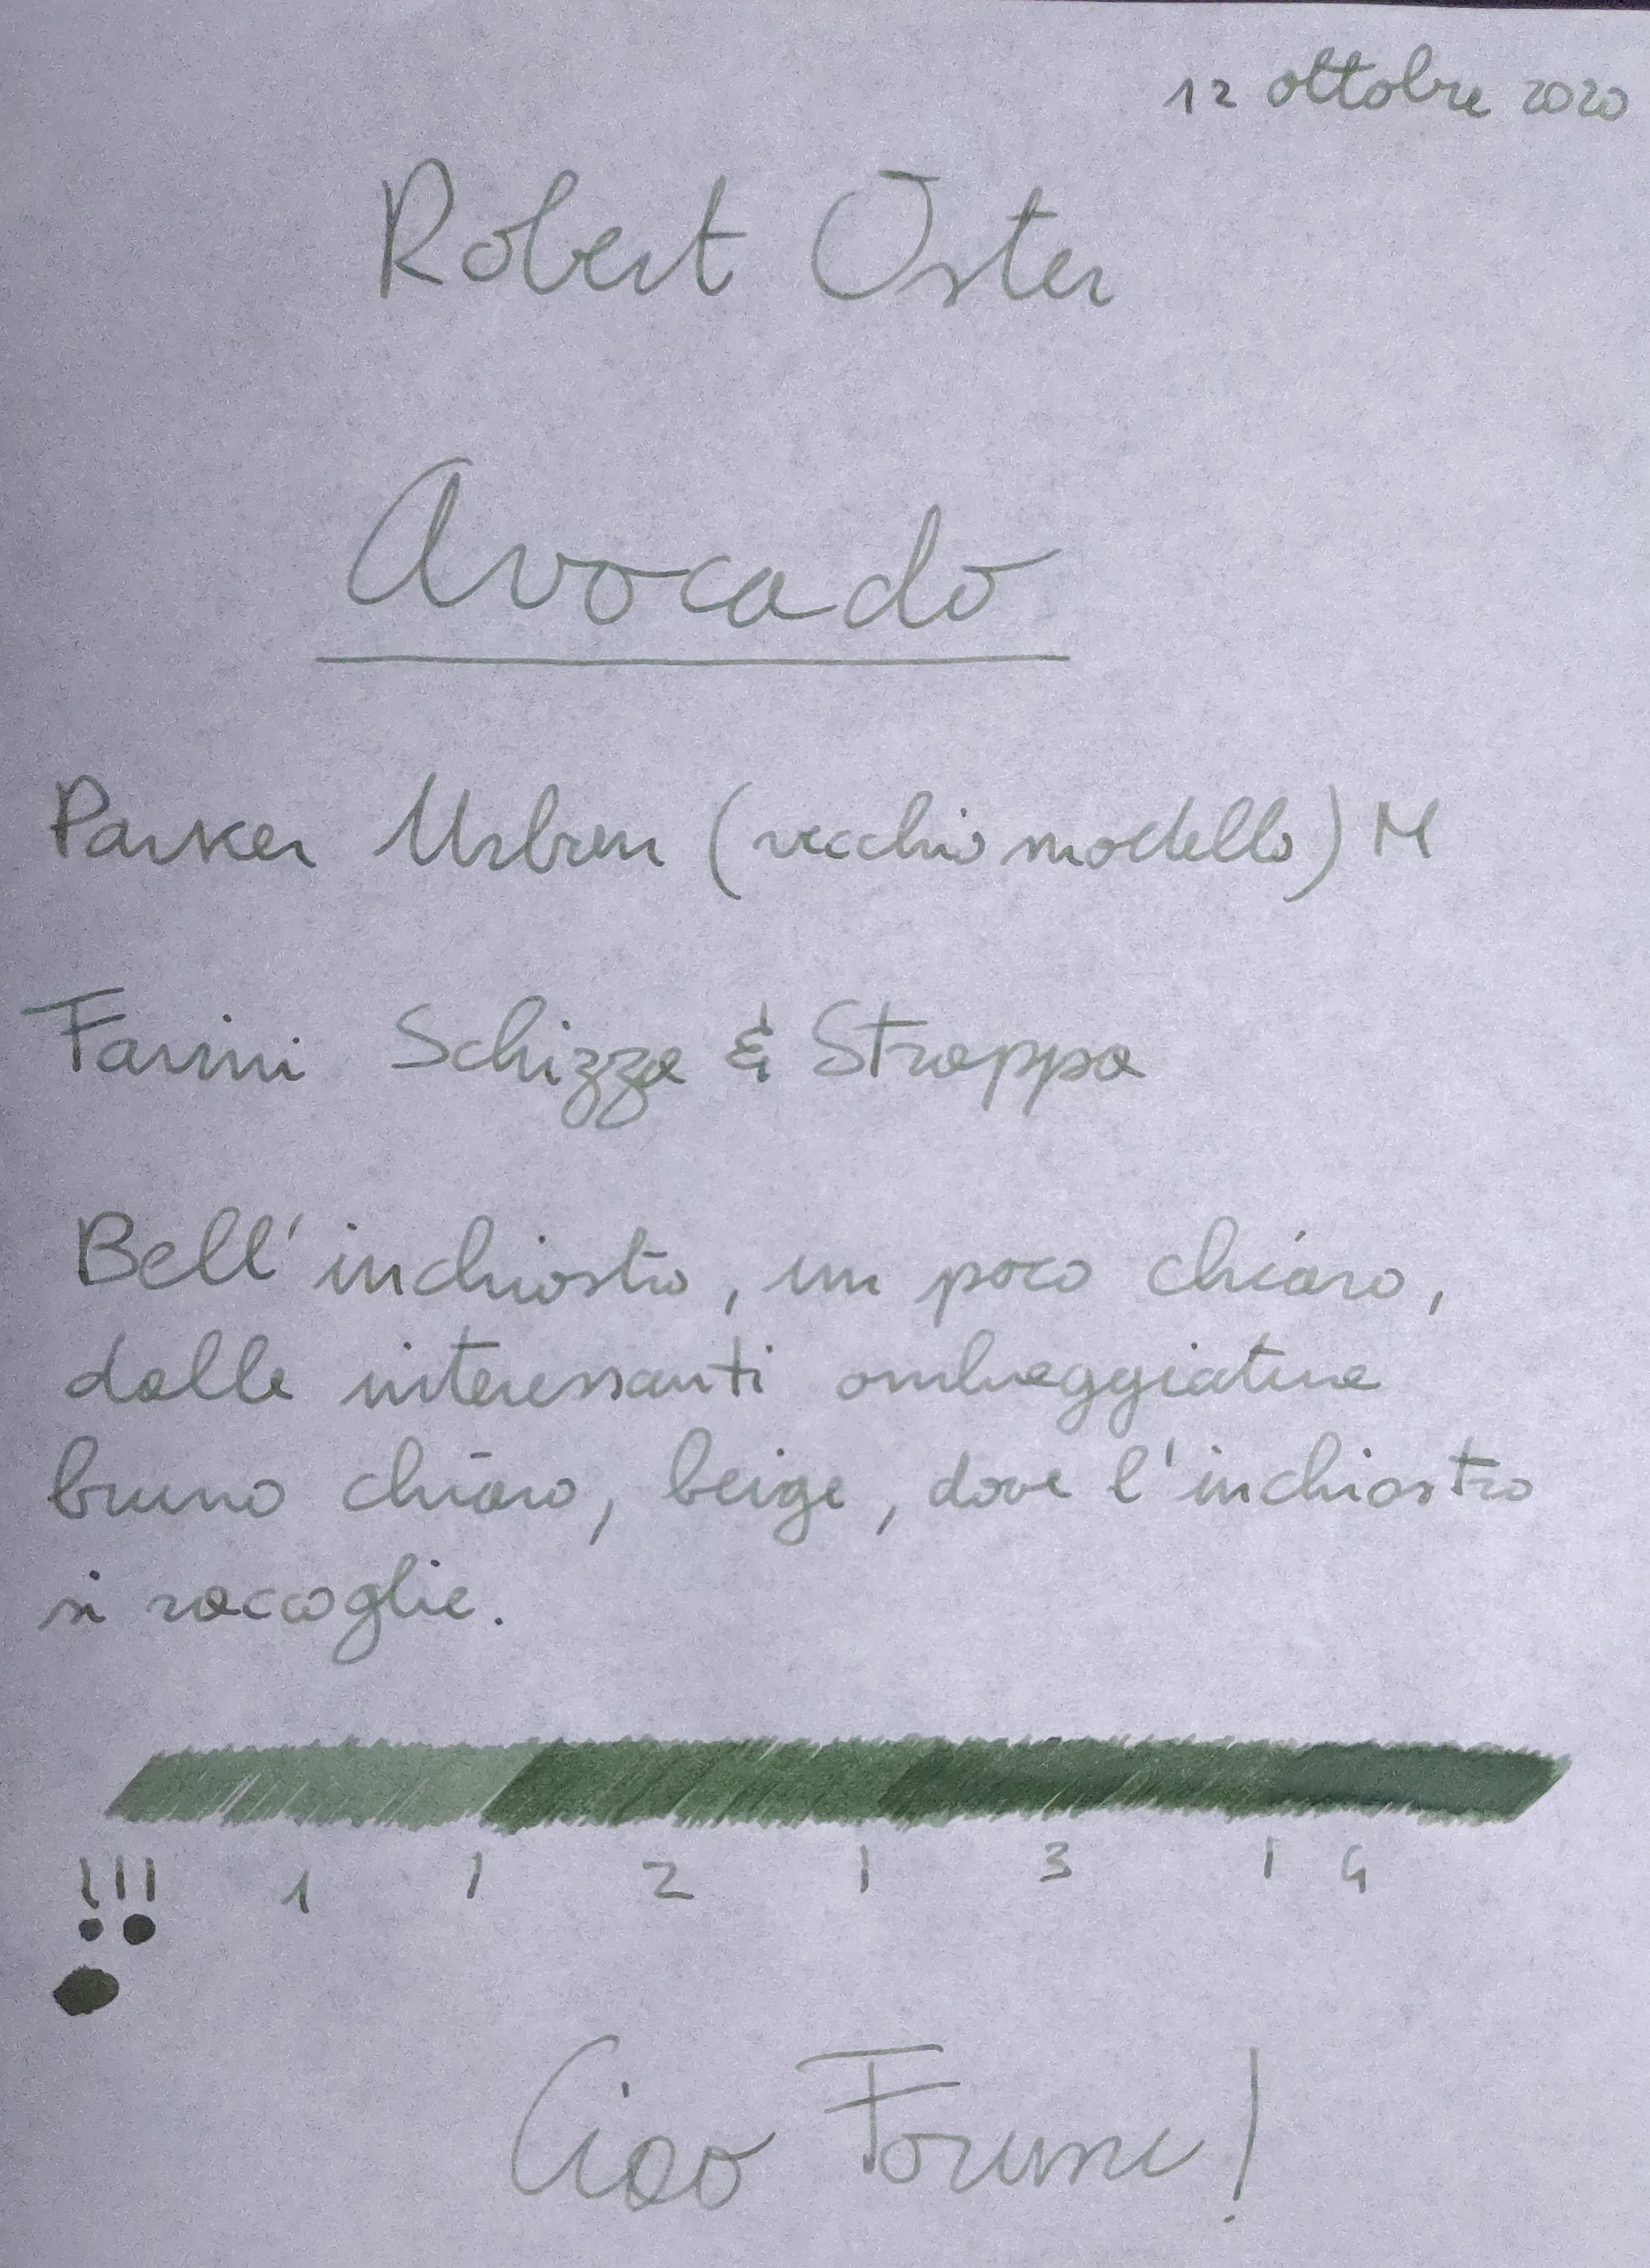 12 ottobre 2020
Robert Oster
Avocado
Parker Urban (vecchio modello) M
Farini Schizza & Strappa
Bell'inchiostro, un poco chiaro,
dalle interessanti ombreggiature
bruno chiaro, beige, dove l'inchiostro
si raccoglie.
!!! 1 | 2 | 3 | 4
Ciao Forum!